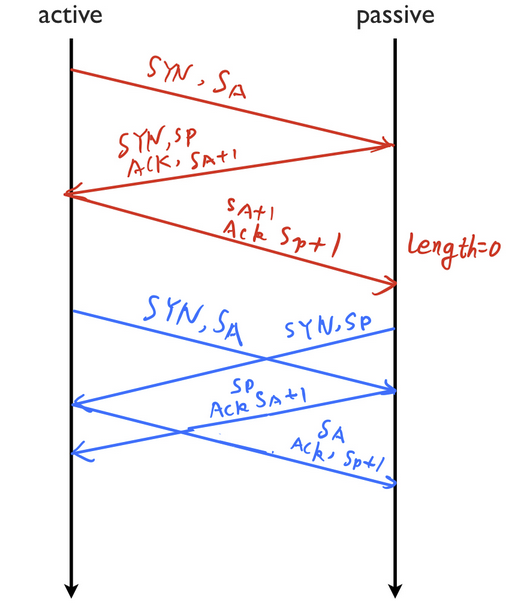 active
passive
SYN, SA
SYN, SP
ACK, SA+1
SA+1
Ack Sp+1
Length=0
SYN, SA
SYN, SP
SP
Ack SA+1
SA
Ack, Sp+1